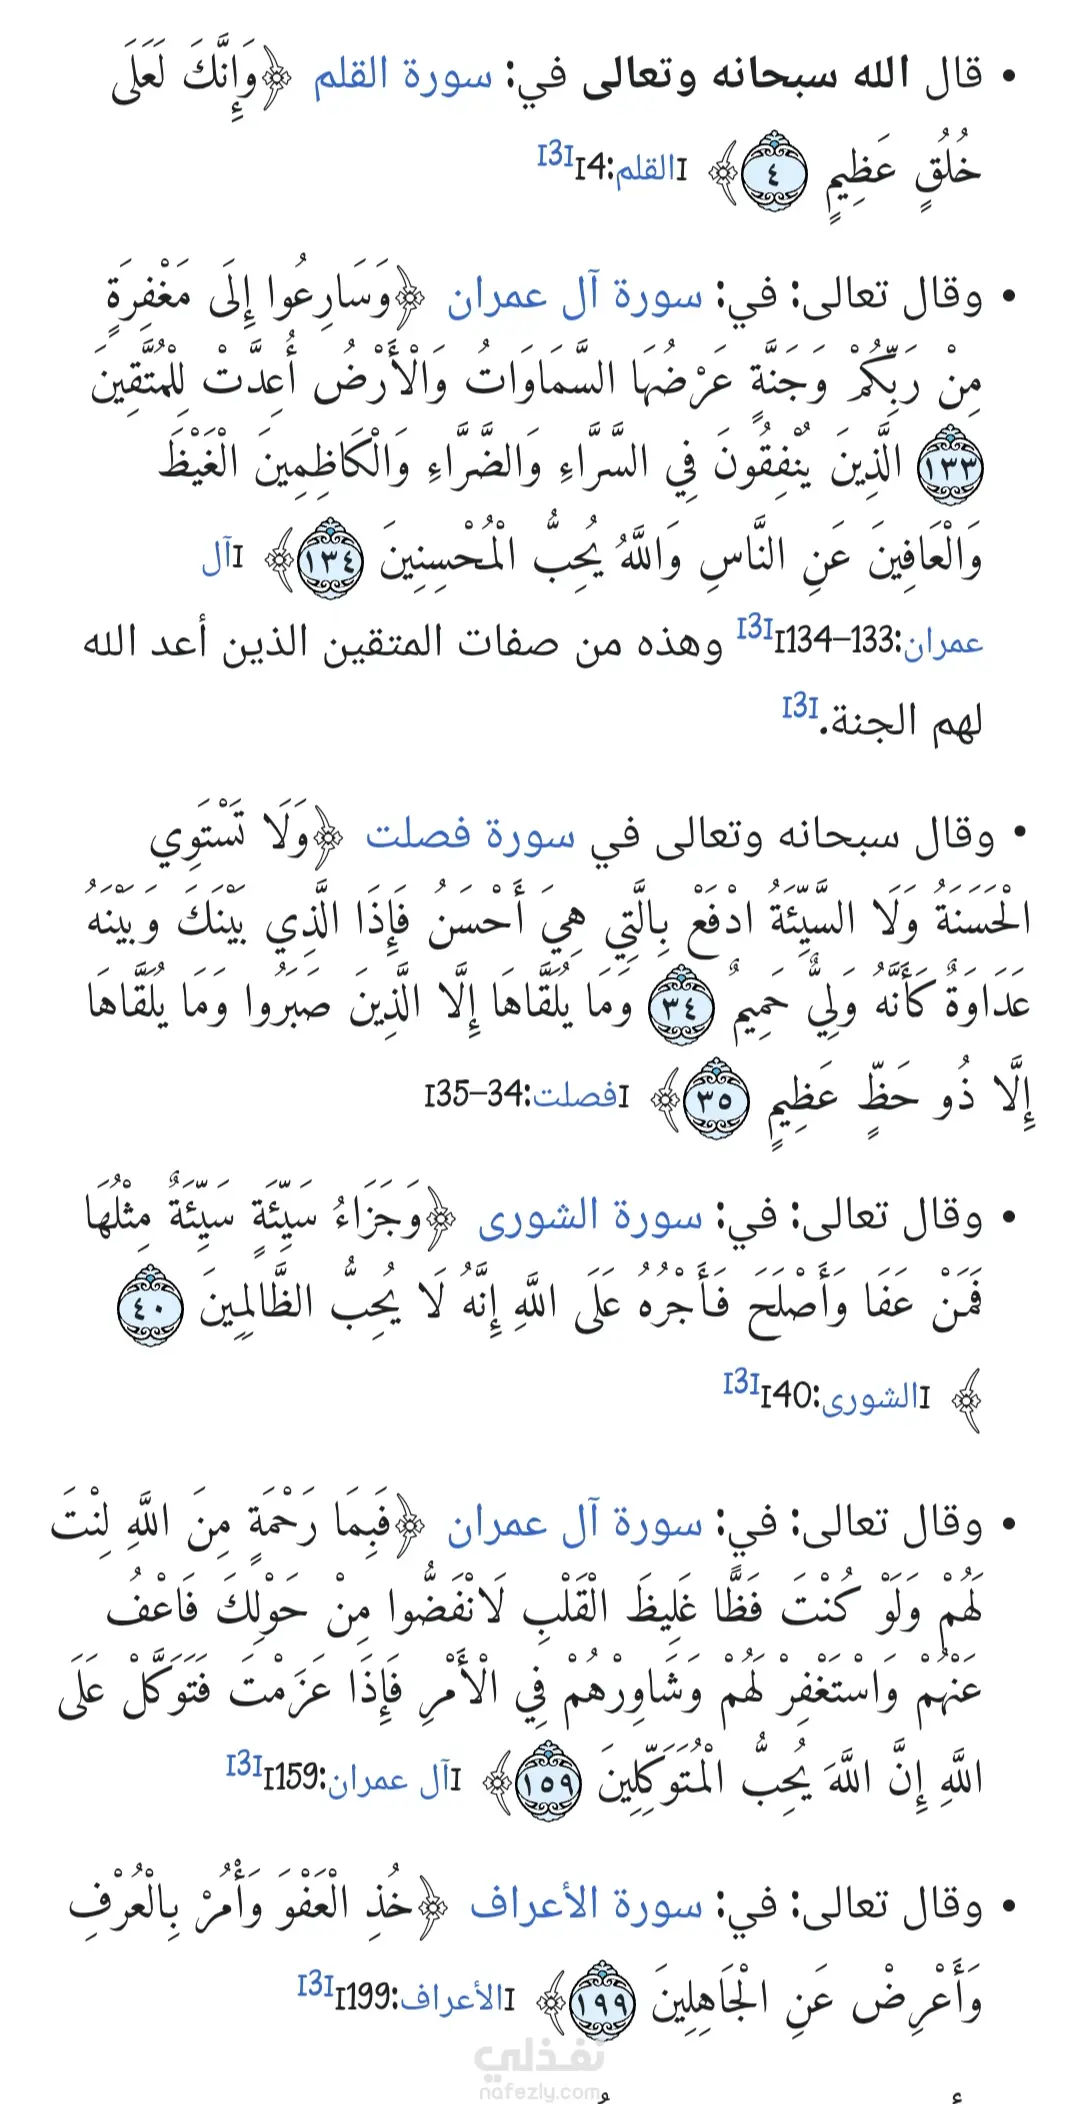 • قال الله سبحانه وتعالى في: سورة القلم ﴿وَإِنَّكَ لَعَلَى
خُلُقٍ عَظِيمٍ ٤﴾ [القلم:4][3]
• وقال تعالى: في: سورة آل عمران ﴿وَسَارِعُوا إِلَى مَغْفِرَةٍ
مِنْ رَبِّكُمْ وَجَنَّةٍ عَرْضُهَا السَّمَاوَاتُ وَالْأَرْضُ أُعِدَّتْ لِلْمُتَّقِينَ
١٣٣ الَّذِينَ يُنْفِقُونَ فِي السَّرَّاءِ وَالضَّرَّاءِ وَالْكَاظِمِينَ الْغَيْظَ
وَالْعَافِينَ عَنِ النَّاسِ وَاللَّهُ يُحِبُّ الْمُحْسِنِينَ ١٣٤﴾ [آل
عمران:133–134][3] وهذه من صفات المتقين الذين أعد الله
لهم الجنة.[3]
• وقال سبحانه وتعالى في سورة فصلت ﴿وَلَا تَسْتَوِي
الْحَسَنَةُ وَلَا السَّيِّئَةُ ادْفَعْ بِالَّتِي هِيَ أَحْسَنُ فَإِذَا الَّذِي بَيْنَكَ وَبَيْنَهُ
عَدَاوَةٌ كَأَنَّهُ وَلِيٌّ حَمِيمٌ ٣٤ وَمَا يُلَقَّاهَا إِلَّا الَّذِينَ صَبَرُوا وَمَا يُلَقَّاهَا
إِلَّا ذُو حَظٍّ عَظِيمٍ ٣٥﴾ [فصلت:34–35]
• وقال تعالى: في: سورة الشورى ﴿وَجَزَاءُ سَيِّئَةٍ سَيِّئَةٌ مِثْلُهَا
فَمَنْ عَفَا وَأَصْلَحَ فَأَجْرُهُ عَلَى اللَّهِ إِنَّهُ لَا يُحِبُّ الظَّالِمِينَ ٤٠
﴾ [الشورى:40][3]
• وقال تعالى: في: سورة آل عمران ﴿فَبِمَا رَحْمَةٍ مِنَ اللَّهِ لِنْتَ
لَهُمْ وَلَوْ كُنْتَ فَظًّا غَلِيظَ الْقَلْبِ لَانْفَضُّوا مِنْ حَوْلِكَ فَاعْفُ
عَنْهُمْ وَاسْتَغْفِرْ لَهُمْ وَشَاوِرْهُمْ فِي الْأَمْرِ فَإِذَا عَزَمْتَ فَتَوَكَّلْ عَلَى
اللَّهِ إِنَّ اللَّهَ يُحِبُّ الْمُتَوَكِّلِينَ ١٥٩﴾ [آل عمران:159][3]
• وقال تعالى: في: سورة الأعراف ﴿خُذِ الْعَفْوَ وَأْمُرْ بِالْعُرْفِ
وَأَعْرِضْ عَنِ الْجَاهِلِينَ ١٩٩﴾ [الأعراف:199][3]
نفذلي
nafezly.com